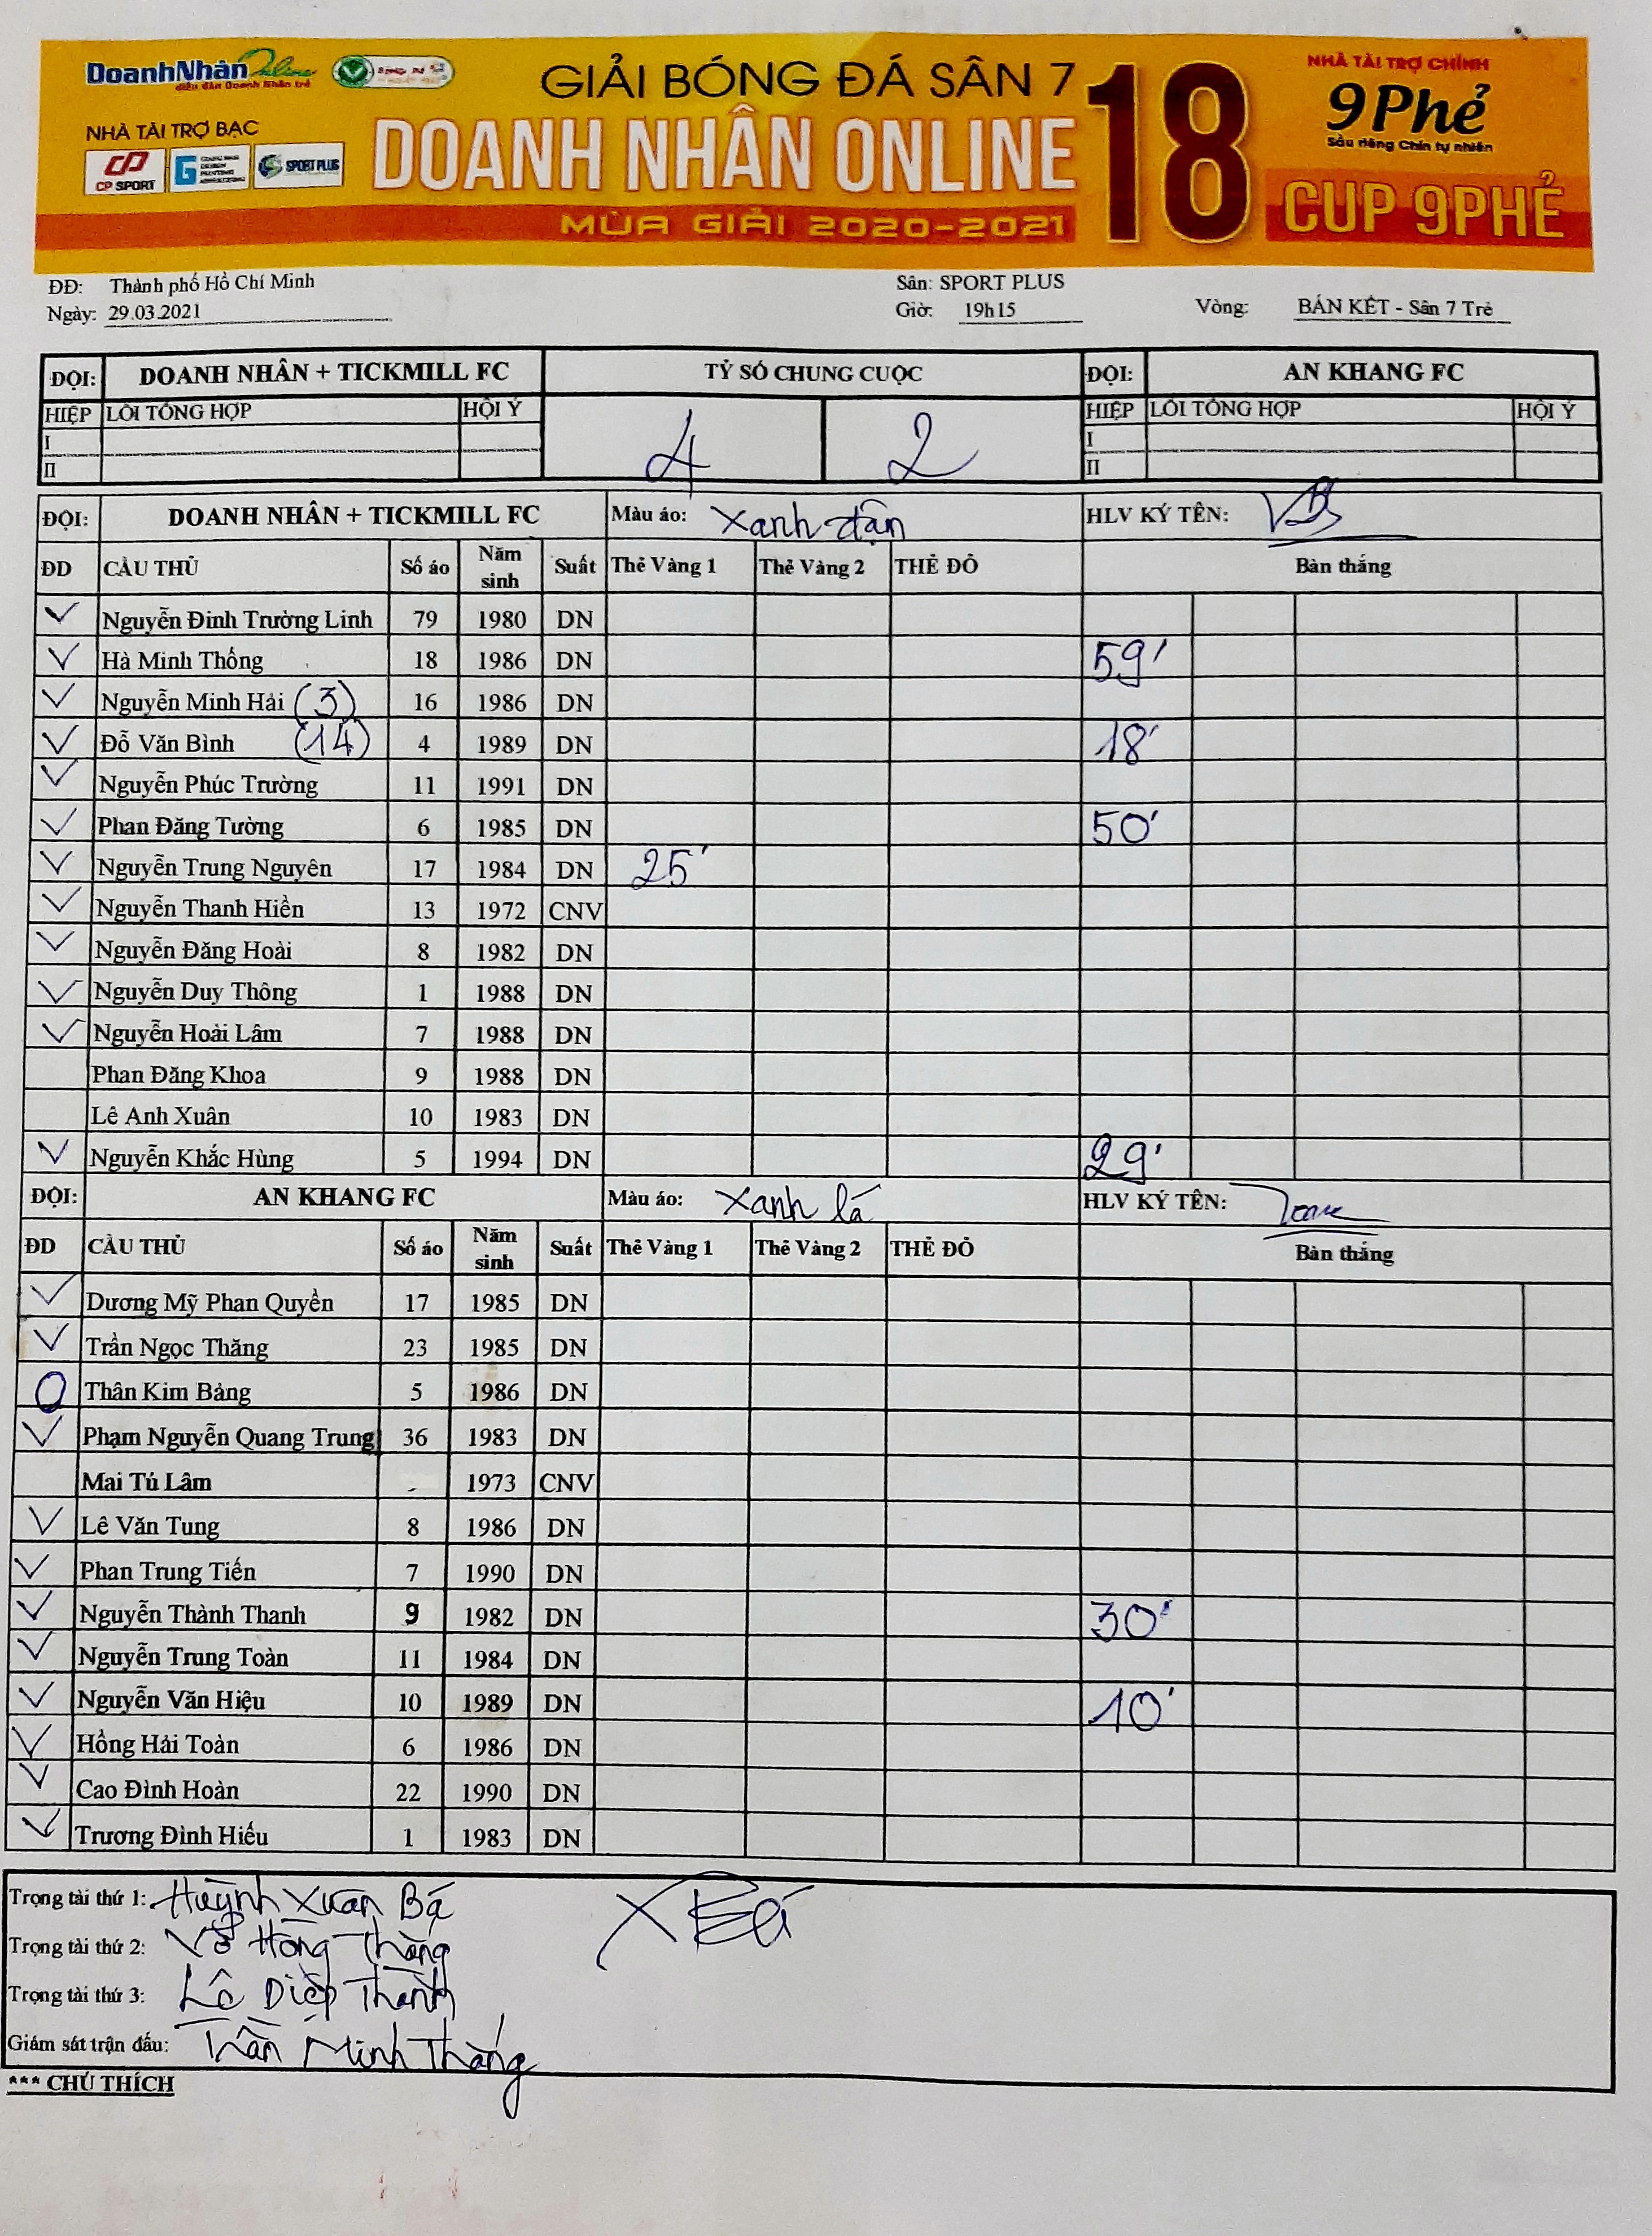 DoanhNhân Online
diễn đàn Doanh Nhân trẻ
NHÀ TÀI TRỢ BẠC
CP SPORT
SPORT PLUS
GIẢI BÓNG ĐÁ SÂN 7
DOANH NHÂN ONLINE
MÙA GIẢI 2020-2021
18
NHÀ TÀI TRỢ CHÍNH
9Phẻ
Sầu riêng Chín tự nhiên
CUP 9PHẺ
ĐĐ: Thành phố Hồ Chí Minh Sân: SPORT PLUS
Ngày: 29.03.2021 Giờ: 19h15 Vòng: BÁN KẾT - Sân 7 Trẻ
ĐỘI: DOANH NHÂN + TICKMILL FC TỶ SỐ CHUNG CUỘC ĐỘI: AN KHANG FC
HIỆP LỖI TỔNG HỢP HỘI Ý 4 2 HIỆP LỖI TỔNG HỢP HỘI Ý
I I
II II
ĐỘI: DOANH NHÂN + TICKMILL FC Màu áo: Xanh đậm HLV KÝ TÊN:
ĐD CẦU THỦ Số áo Năm sinh Suất Thẻ Vàng 1 Thẻ Vàng 2 THẺ ĐỎ Bàn thắng
Nguyễn Đình Trường Linh 79 1980 DN
Hà Minh Thống 18 1986 DN 59'
Nguyễn Minh Hải (3) 16 1986 DN
Đỗ Văn Bình (14) 4 1989 DN 18'
Nguyễn Phúc Trường 11 1991 DN
Phan Đăng Tường 6 1985 DN 50'
Nguyễn Trung Nguyên 17 1984 DN 25'
Nguyễn Thanh Hiền 13 1972 CNV
Nguyễn Đăng Hoài 8 1982 DN
Nguyễn Duy Thông 1 1988 DN
Nguyễn Hoài Lâm 7 1988 DN
Phan Đăng Khoa 9 1988 DN
Lê Anh Xuân 10 1983 DN
Nguyễn Khắc Hùng 5 1994 DN 29'
ĐỘI: AN KHANG FC Màu áo: Xanh lá HLV KÝ TÊN:
ĐD CẦU THỦ Số áo Năm sinh Suất Thẻ Vàng 1 Thẻ Vàng 2 THẺ ĐỎ Bàn thắng
Dương Mỹ Phan Quyền 17 1985 DN
Trần Ngọc Thăng 23 1985 DN
Thân Kim Bảng 5 1986 DN
Phạm Nguyễn Quang Trung 36 1983 DN
Mai Tú Lâm 1973 CNV
Lê Văn Tung 8 1986 DN
Phan Trung Tiến 7 1990 DN
Nguyễn Thành Thanh 9 1982 DN 30'
Nguyễn Trung Toàn 11 1984 DN
Nguyễn Văn Hiệu 10 1989 DN 10'
Hồng Hải Toàn 6 1986 DN
Cao Đình Hoàn 22 1990 DN
Trương Đình Hiếu 1 1983 DN
Trọng tài thứ 1: Huỳnh Xuân Bá XBá
Trọng tài thứ 2: Võ Hồng Thắng
Trọng tài thứ 3: Lê Diệp Thành
Giám sát trận đấu: Trần Minh Thắng
*** CHÚ THÍCH